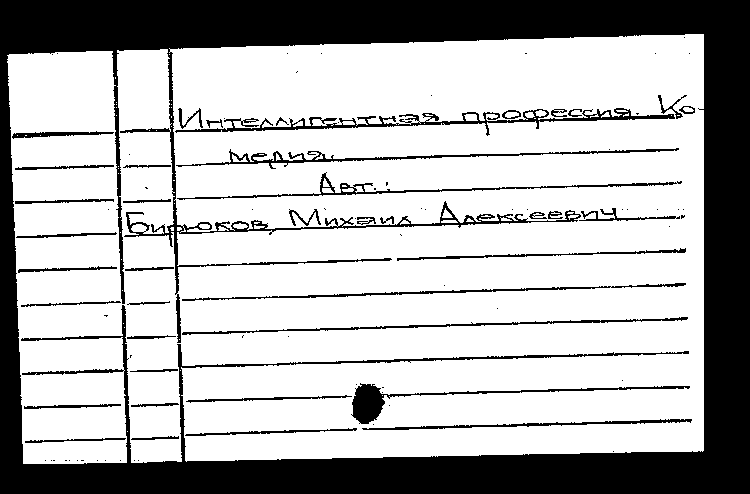 Интеллигентная профессия. Ко-
медия.
Авт.:
Бирюков, Михаил Алексеевич